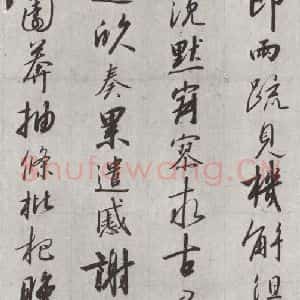 即兩疏見機解組
沈默寂寥求古
欣奏累遣慼謝
園莽抽條枇杷晚
Shufawang.Cn